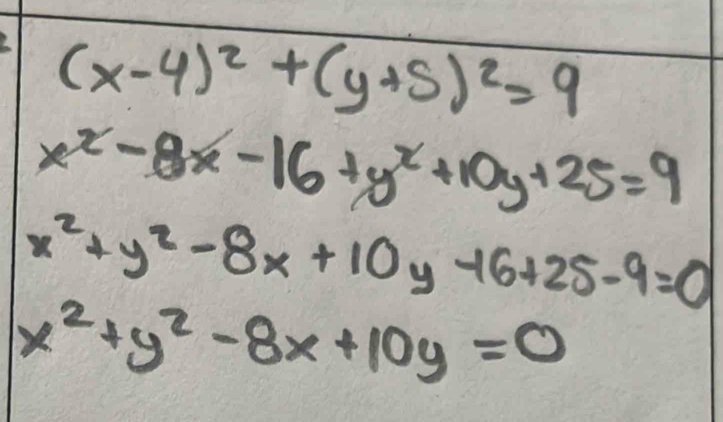 (x-4)² + (y+5)² = 9
x² - 8x - 16 + y² + 10y + 25 = 9
x² + y² - 8x + 10y - 16 + 25 - 9 = 0
x² + y² - 8x + 10y = 0